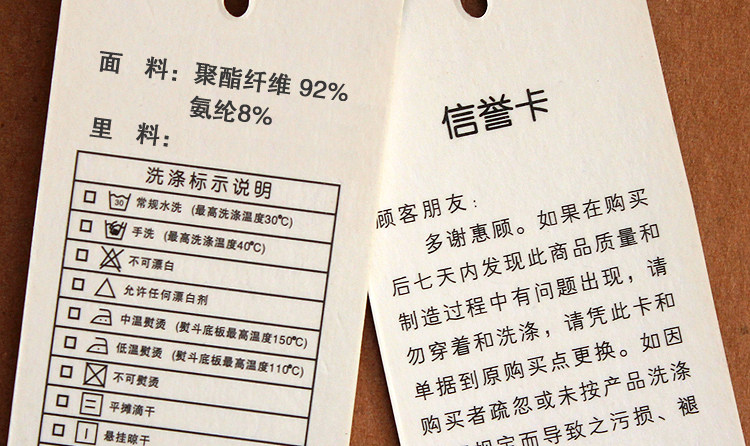 面 料：聚酯纤维 92%
氨纶8%
里 料：
洗涤标示说明
30 常规水洗 (最高洗涤温度30℃)
手洗 (最高洗涤温度40℃)
不可漂白
允许任何漂白剂
中温熨烫 (熨斗底板最高温度150℃)
低温熨烫 (熨斗底板最高温度110℃)
不可熨烫
平摊滴干
悬挂晾干
信誉卡
顾客朋友：
多谢惠顾。如果在购买
后七天内发现此商品质量和
制造过程中有问题出现，请
勿穿着和洗涤，请凭此卡和
单据到原购买点更换。如因
购买者疏忽或未按产品洗涤
规定而导致之污损、褪